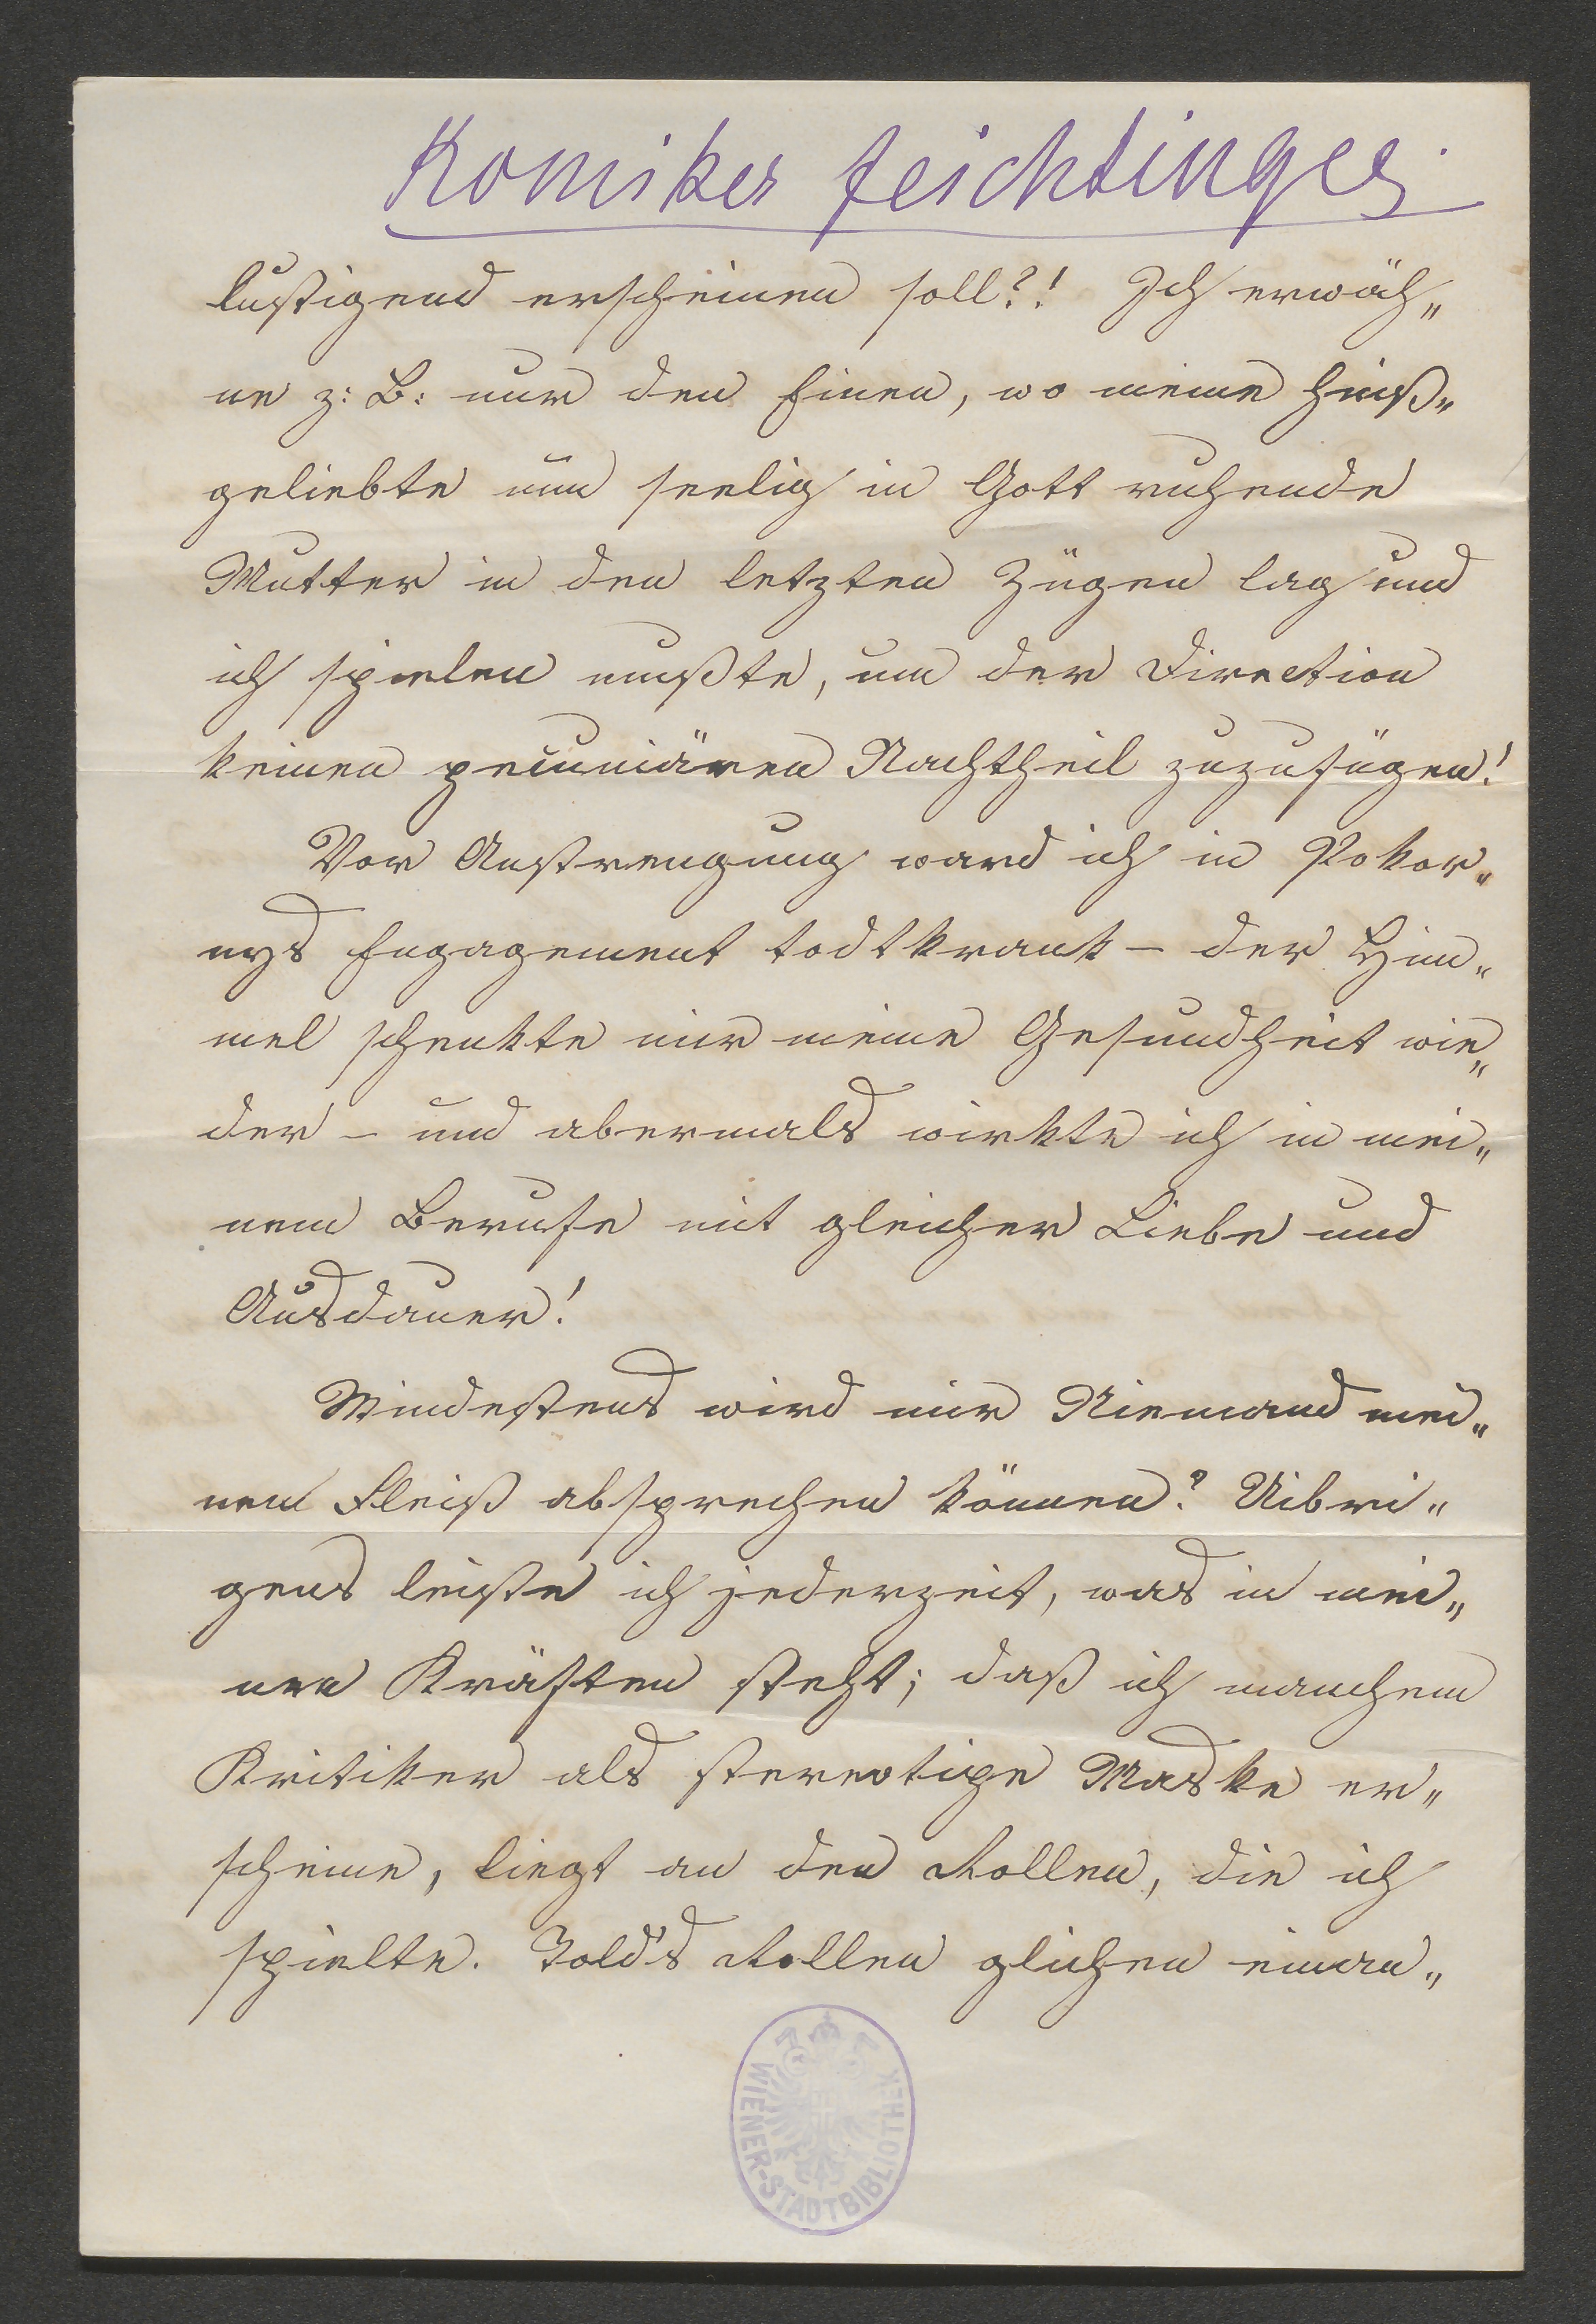 Komiker Feichtinger
lustigend erscheinen soll?! Ich erwäh„
ne z: B: nur den Einen, wo meine heiß„
geliebte nun seelig in Gott ruhende
Mutter in den letzten Zügen lag und
ich spielen mußte, um der Direction
keinen pecuniären Nachtheil zuzufügen!
Vor Anstrengung ward ich in Pokor„
nys Engagement todtkrank – der Him„
mel schenkte mir meine Gesundheit wie„
der – und abermals wirkte ich in mei„
nem Berufe mit gleicher Liebe und
Ausdauer!
Mindestens wird mir Niemand mei„
nen Fleiß absprechen können? Uibri„
gens leiste ich jederzeit, was in mei„
nen Kräften steht; daß ich manchem
Kritiker als stereotipe Maske er„
scheine, liegt an den Rollen, die ich
spielte. Told's Rollen glichen einan„
WIENER-STADTBIBLIOTHEK